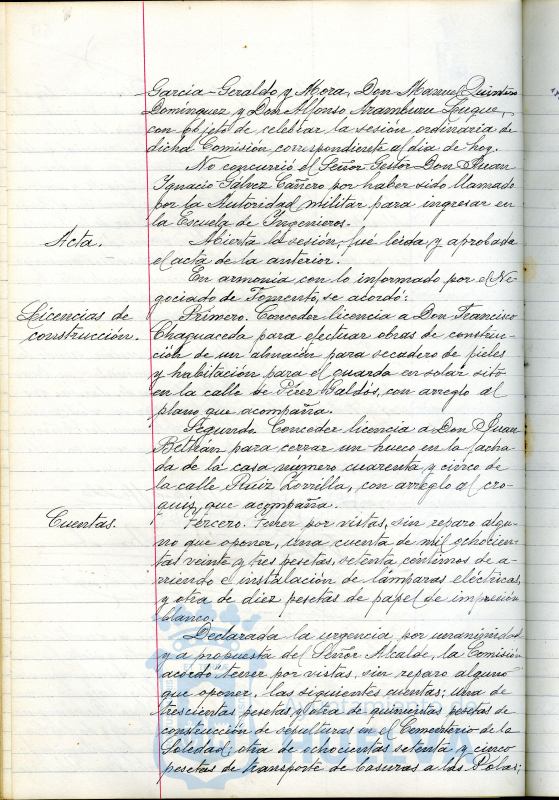 García-Geraldo y Mora, Don Manuel Quintero
Domínguez y Don Alfonso Aramburu Luque,
con objeto de celebrar la sesión ordinaria de
dicha Comisión correspondiente al día de hoy.
No concurrió el Señor Gestor Don Juan
Ignacio Gálvez Cañero por haber sido llamado
por la Autoridad militar para ingresar en
la Escuela de Ingenieros.
Acta.
Abierta la sesión, fué leída y aprobada
el acta de la anterior.
En armonía con lo informado por el Ne-
gociado de Fomento, se acordó:
Licencias de
construcción.
Primero. Conceder licencia a Don Francisco
Chaguaceda para efectuar obras de construc-
ción de un almacén para secadero de pieles
y habitación para el guarda en solar sito
en la calle de Pérez Galdós, con arreglo al
plano que acompaña.
Segundo. Conceder licencia a Don Juan
Beltrán para cerrar un hueco en la facha-
da de la casa número cuarenta y cinco de
la calle Ruiz Zorrilla, con arreglo al cro-
quis que acompaña.
Cuentas.
Tercero. Tener por vistas, sin reparo algu-
no que oponer, una cuenta de mil ochocien-
tas veinte y tres pesetas, setenta céntimos de a-
rriendo e instalación de lámparas eléctricas,
y otra de diez pesetas de papel de impresión
blanco.
Declarada la urgencia por unanimidad
y a propuesta del Señor Alcalde, la Comisión
acordó tener por vistas, sin reparo alguno
que oponer, las siguientes cuentas: una de
trescientas pesetas y otra de quinientas pesetas de
construcción de sepulturas en el Cementerio de la
Soledad; otra de ochocientas setenta y cinco
pesetas de transporte de basuras a las Polas;